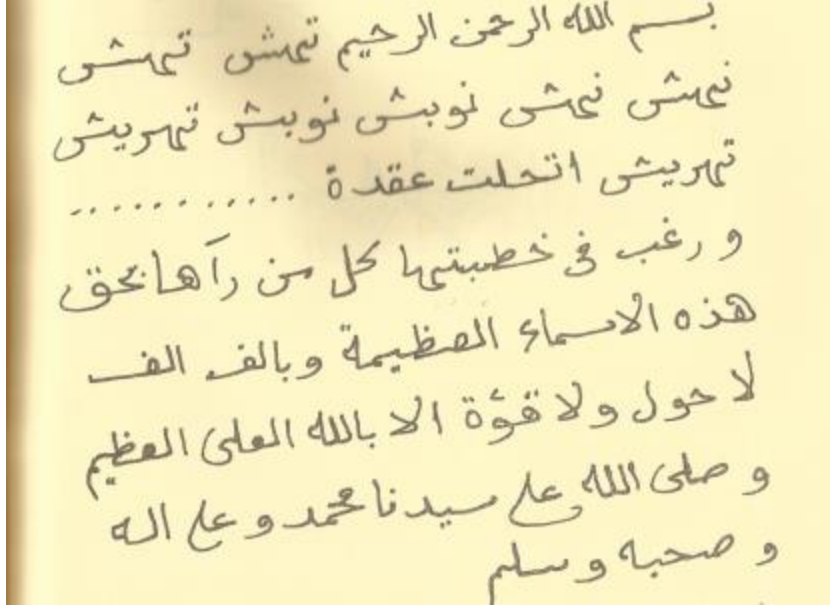 بسم الله الرحمن الرحيم تمهش تمهش
نمهش نمهش نوبش نوبش تمهريش
تمهريش اتحلت عقدة ............
و رغب في خطبتها كل من رآها بحق
هذه الاسماء العظيمة وبالف الف
لا حول ولا قوة الا بالله العلى العظيم
و صلى الله على سيدنا محمد و على اله
و صحبه و سلم